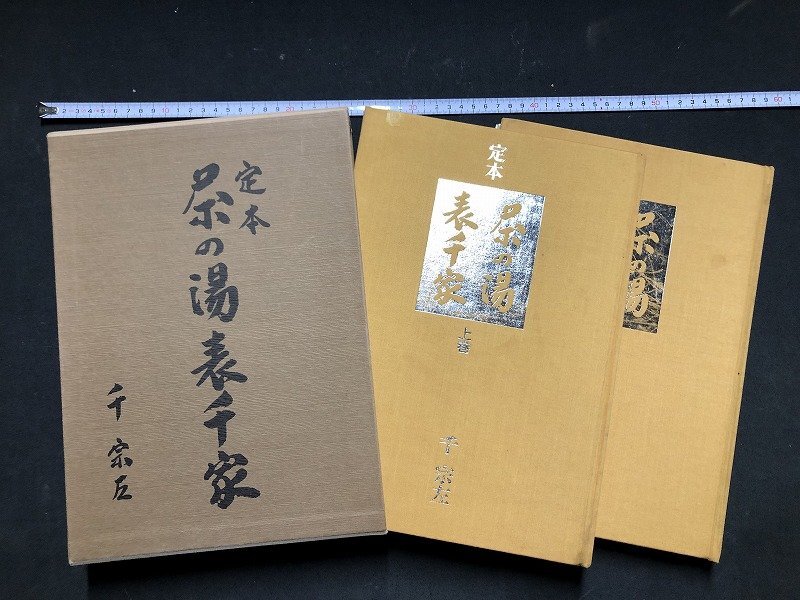 定本
茶の湯表千家
千宗左
定本
茶の湯
表千家
上巻
千宗左
茶の湯